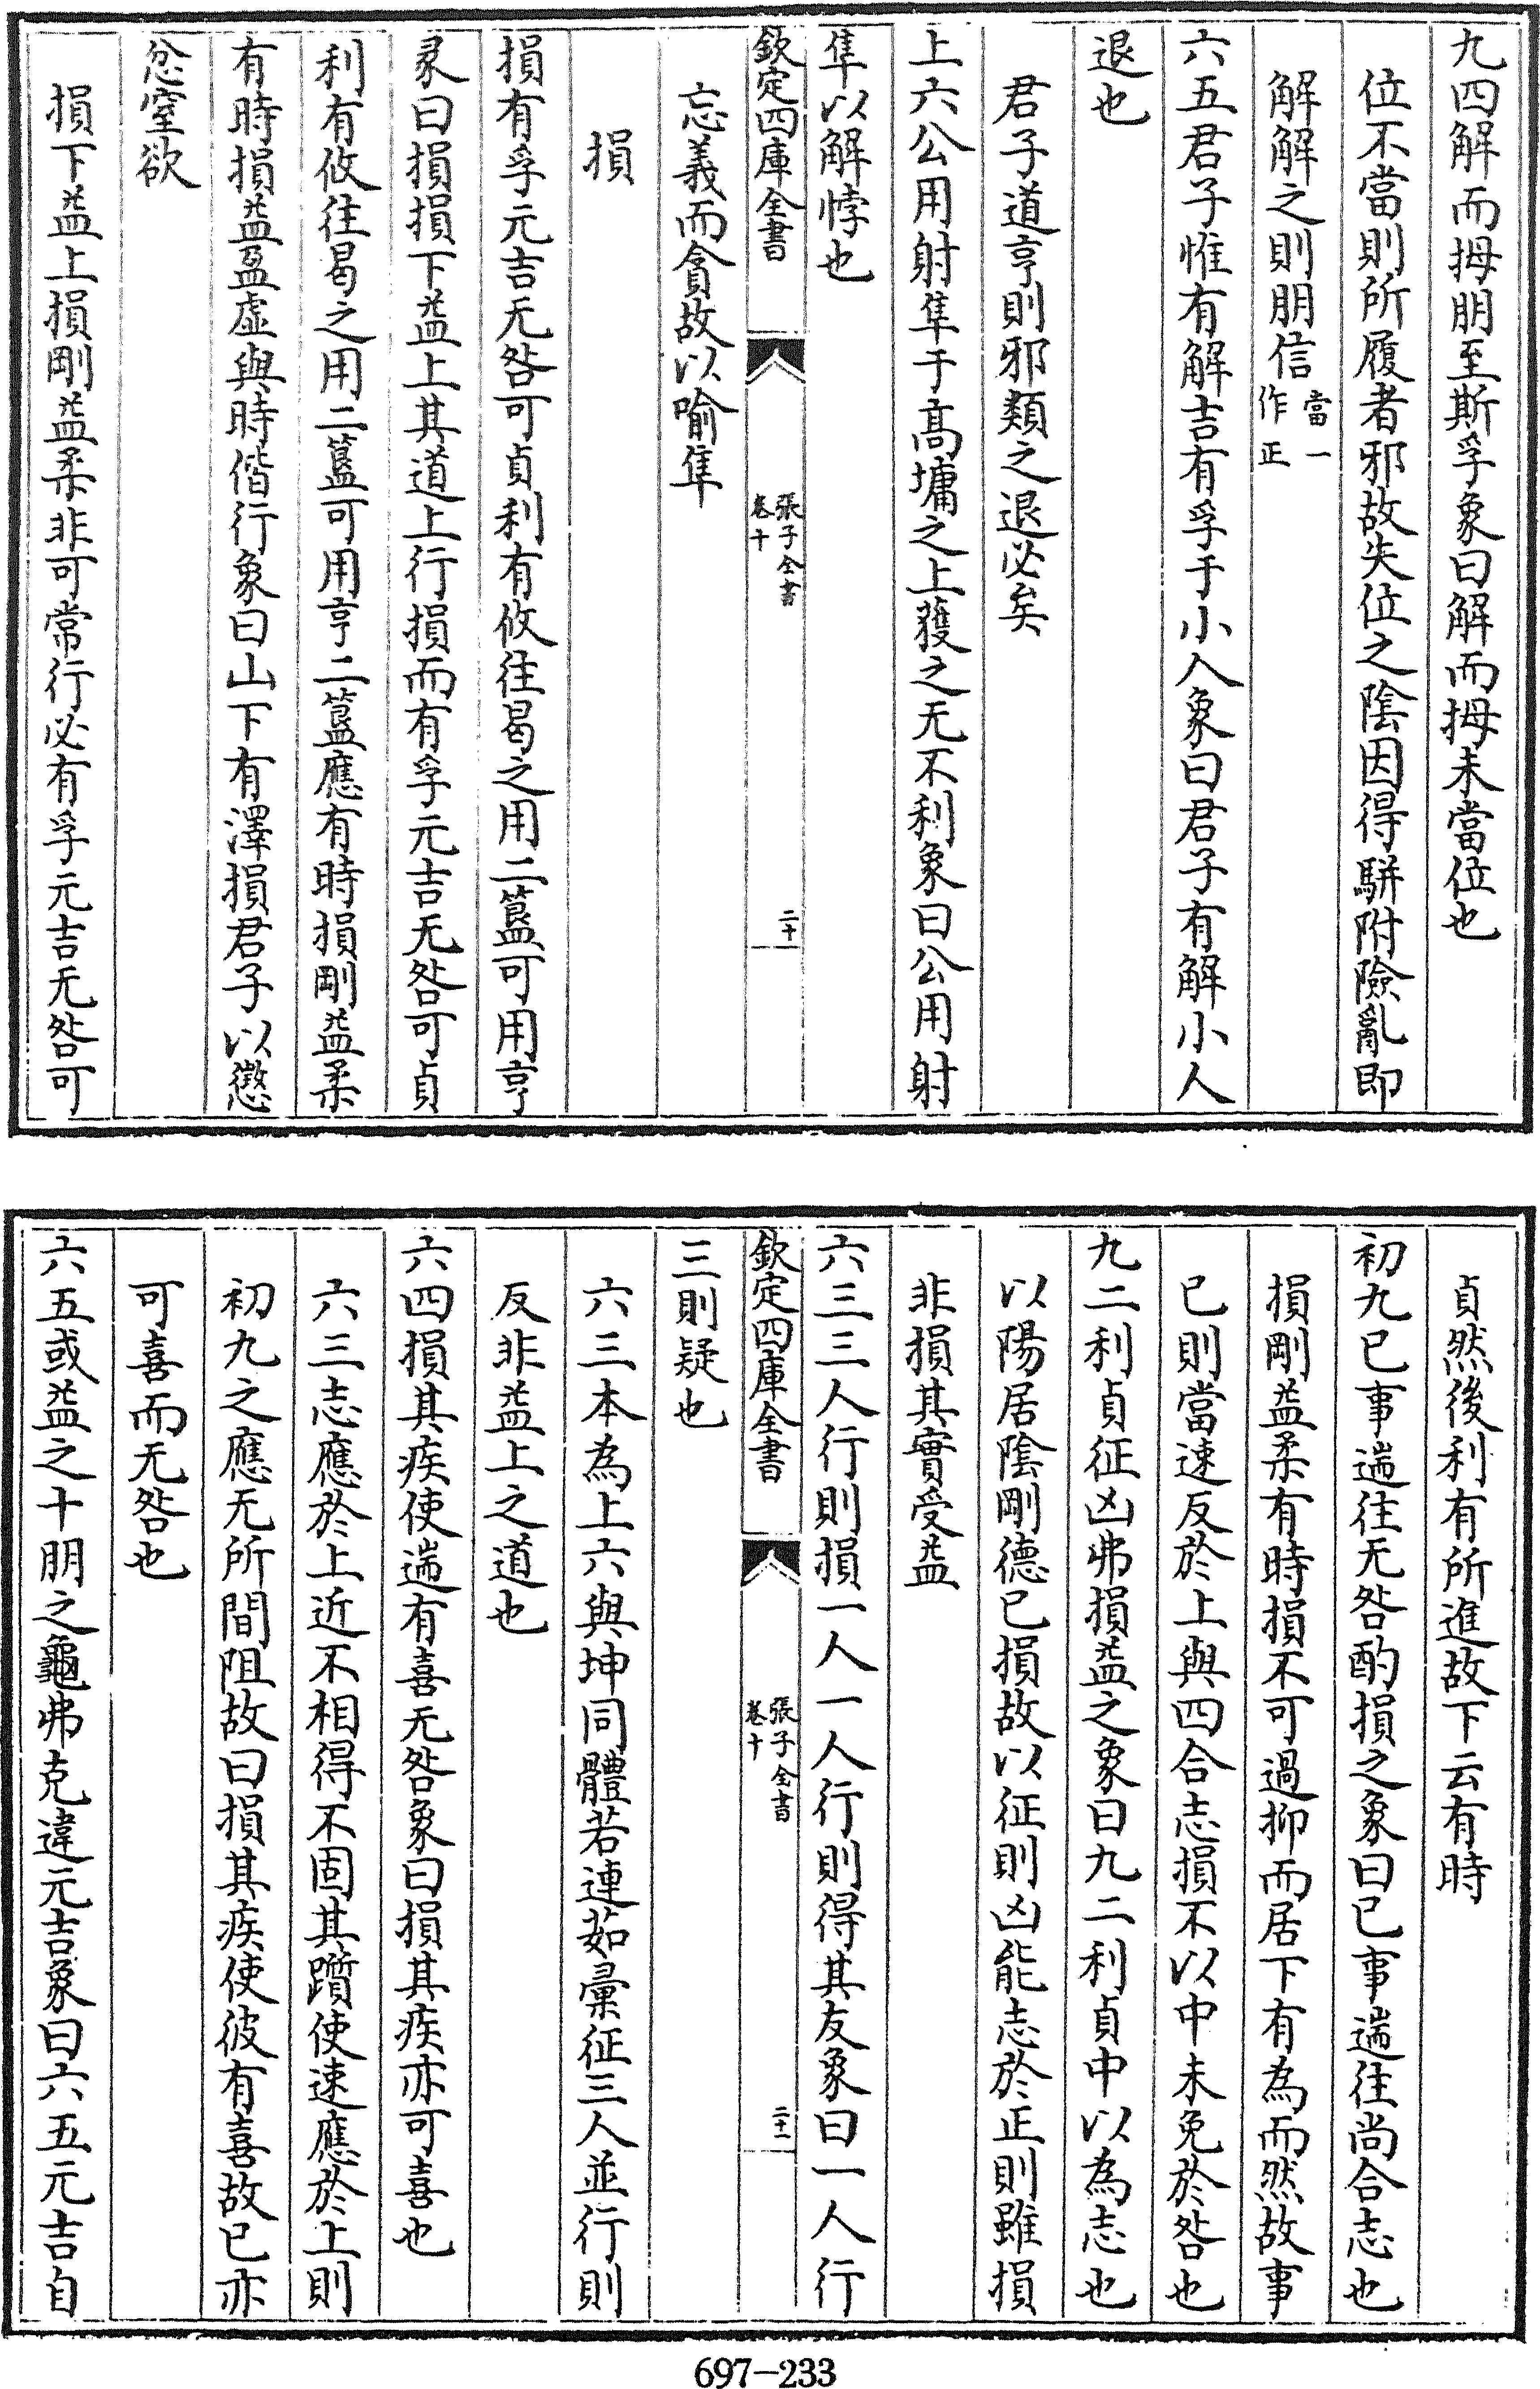 九四解而拇朋至斯孚象曰解而拇未當位也
位不當則所履者邪故失位之陰因得駢附險亂即
解解之則朋信當一作正
六五君子惟有解吉有孚于小人象曰君子有解小人
退也
君子道亨則邪類之退必矣
上六公用射隼于髙墉之上獲之无不利象曰公用射
隼以解悖也
欽定四庫全書
張子全書
卷十
二十
忘義而貪故以喻隼
損
損有孚元吉无咎可貞利有攸往曷之用二簋可用亨
彖曰損損下益上其道上行損而有孚元吉无咎可貞
利有攸往曷之用二簋可用亨二簋應有時損剛益柔
有時損益盈虛與時偕行象曰山下有澤損君子以懲
忿窒欲
損下益上損剛益柔非可常行必有孚元吉无咎可
貞然後利有所進故下云有時
初九已事遄往无咎酌損之象曰已事遄往尚合志也
損剛益柔有時損不可過抑而居下有為而然故事
已則當速反於上與四合志損不以中未免於咎也
九二利貞征凶弗損益之象曰九二利貞中以為志也
以陽居陰剛德已損故以征則凶能志於正則雖損
非損其實受益
六三三人行則損一人一人行則得其友象曰一人行
欽定四庫全書
張子全書
卷十
二十一
三則疑也
六三本為上六與坤同體若連茹彚征三人並行則
反非益上之道也
六四損其疾使遄有喜无咎象曰損其疾亦可喜也
六三志應於上近不相得不固其躓使速應於上則
初九之應无所間阻故曰損其疾使彼有喜故已亦
可喜而无咎也
六五或益之十朋之龜弗克違元吉象曰六五元吉自
697-233